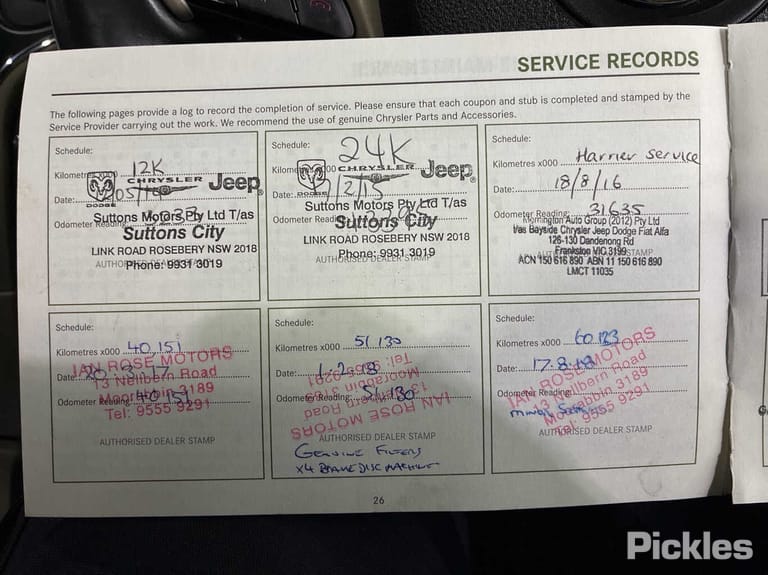 SERVICE RECORDS
The following pages provide a log to record the completion of service. Please ensure that each coupon and stub is completed and stamped by the
Service Provider carrying out the work. We recommend the use of genuine Chrysler Parts and Accessories.
Schedule:
Kilometres x000 12K
DODGE CHRYSLER Jeep
Date: 05/
Suttons Motors Pty Ltd T/as
Odometer Reading:
Suttons City
LINK ROAD ROSEBERY NSW 2018
AUTHORISED DEALER STAMP
Phone: 9931 3019
Schedule:
Kilometres x000 24K
DODGE CHRYSLER Jeep
Date: /2/15
Suttons Motors Pty Ltd T/as
Odometer Reading:
Suttons City
LINK ROAD ROSEBERY NSW 2018
AUTHORISED DEALER STAMP
Phone: 9931 3019
Schedule:
Kilometres x000 Harrier Service
Date: 18/8/16
Odometer Reading: 31635
Mornington Auto Group (2012) Pty Ltd
t/as Bayside Chrysler Jeep Dodge Fiat Alfa
126-130 Dandenong Rd
Frankston VIC 3199
AUTHORISED DEALER STAMP
ACN 150 616 890 ABN 11 150 616 890
LMCT 11035
Schedule:
Kilometres x000 40,151
IAN ROSE MOTORS
Date: 20.3.17
13 Nellbern Road
Moorabbin 3189
Odometer Reading: 40,151
Tel: 9555 9291
AUTHORISED DEALER STAMP
Schedule:
Kilometres x000 51 130
Date: 1-2-18
Tel: 9555 9291
Moorabbin 3189
Odometer Reading: 51,130
13 Nellbern Road
IAN ROSE MOTORS
AUTHORISED DEALER STAMP
GENUINE FILTERS
X4 BRAKE DISC MACHINE
Schedule:
Kilometres x000
Date: 17.8.18
IAN ROSE MOTORS
13 Nellbern Road
Odometer Reading:
Moorabbin 3189
Tel: 9555 9291
AUTHORISED DEALER STAMP
26
Pickles